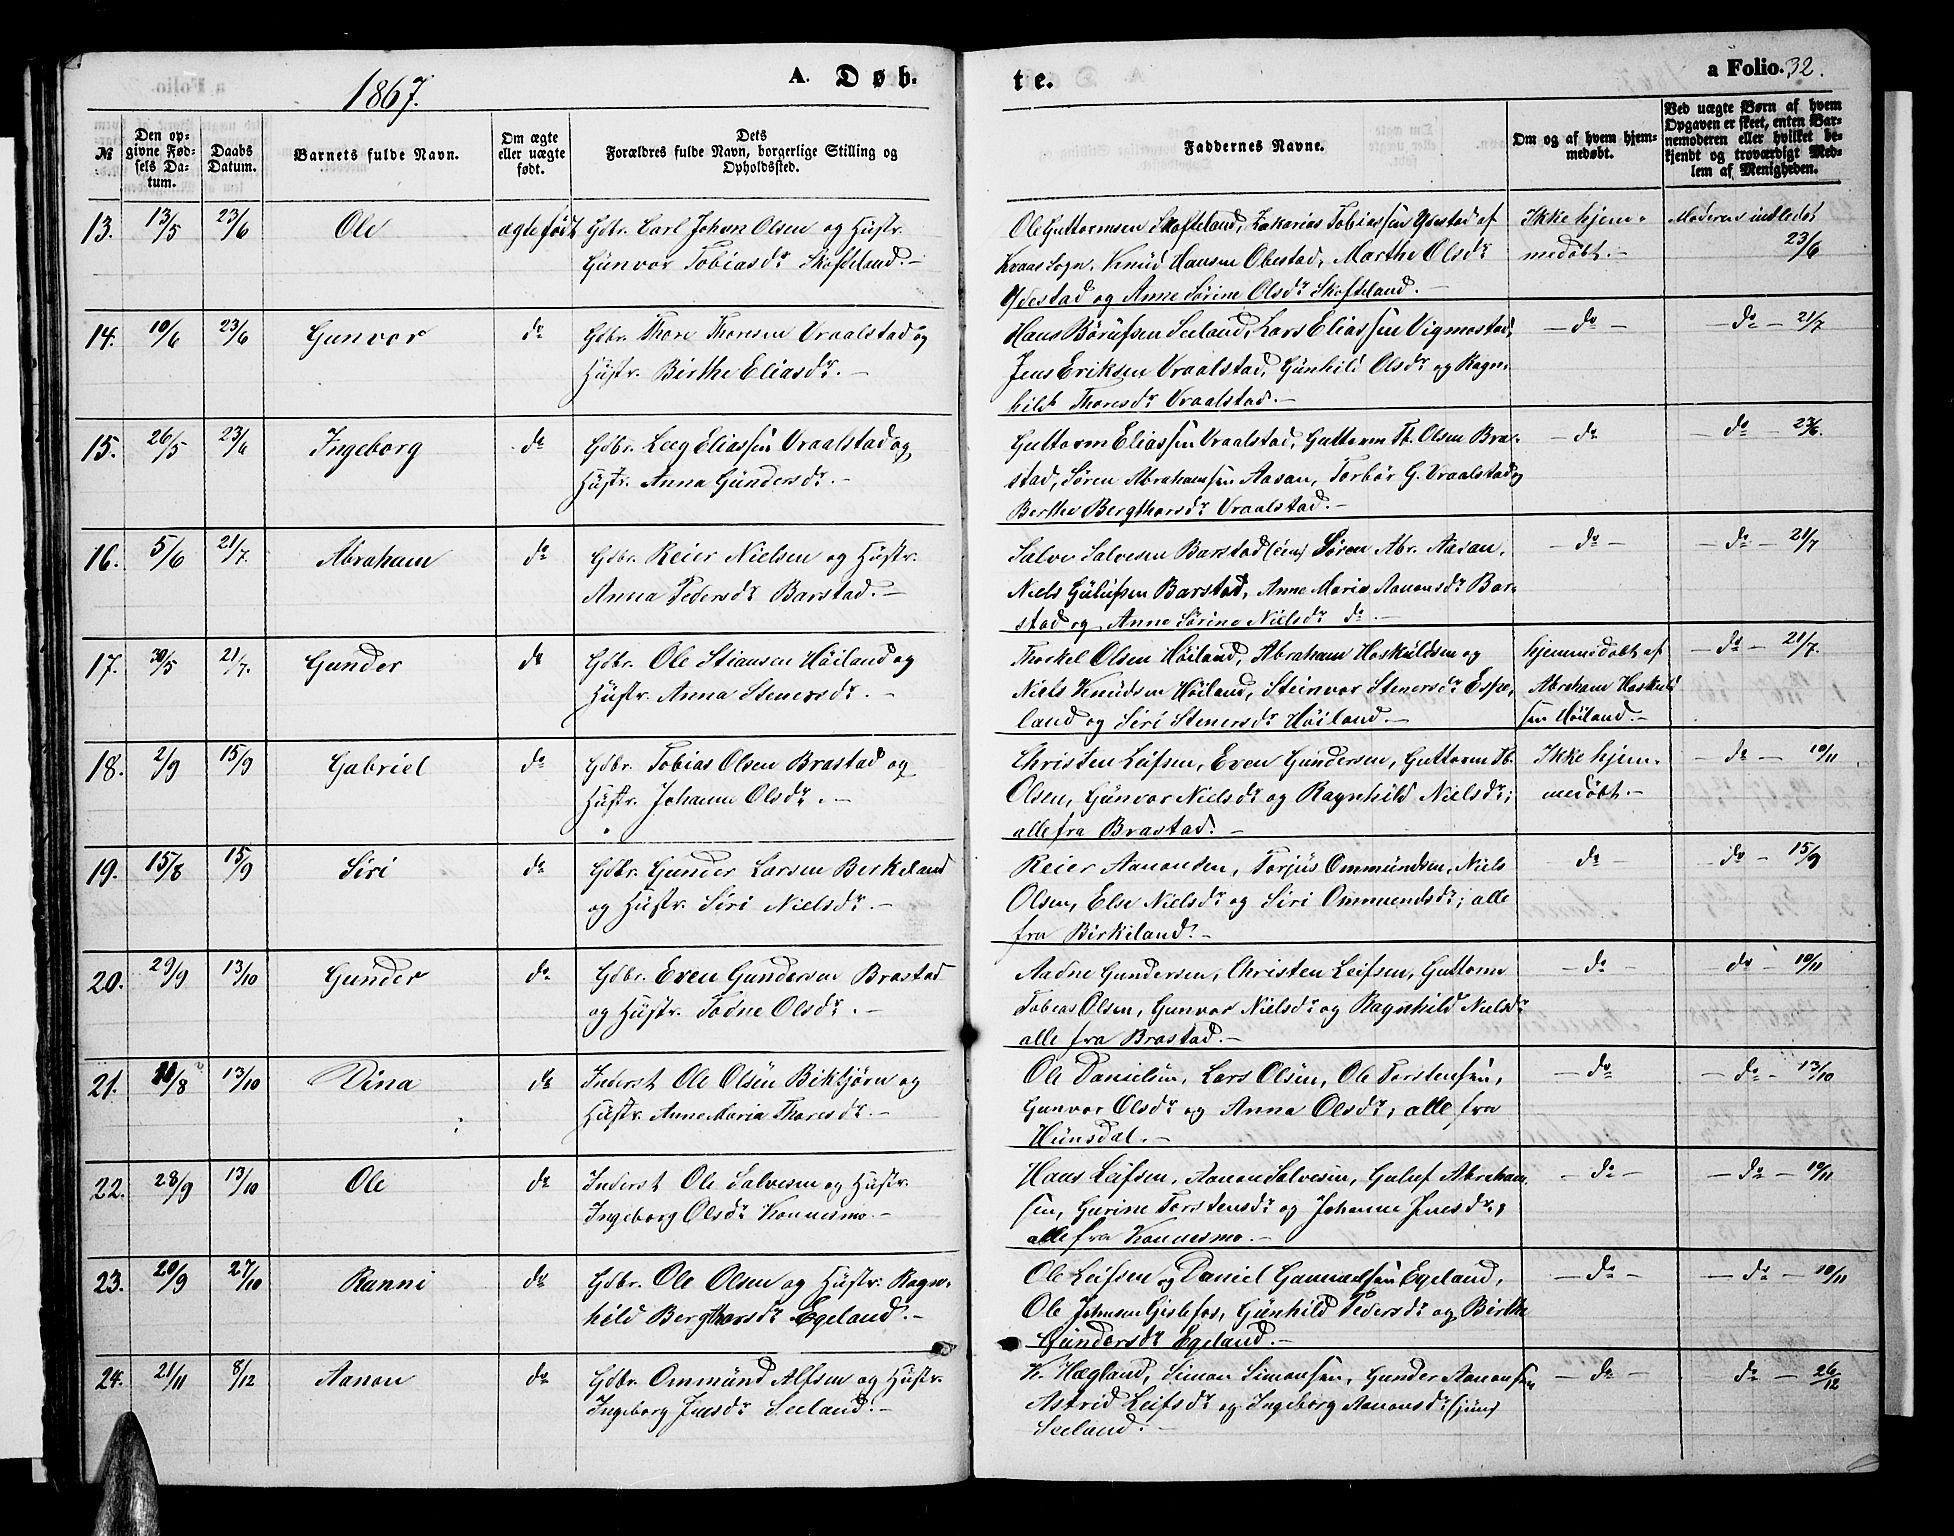 1867.
A. Døb-
te.
a Folio. 32.
№
Den op-
givne Fød-
sels Da-
tum.
Daabs
Datum.
Barnets fulde Navn.
Om ægte
eller uægte
født.
Dets
Forældres fulde Navn, borgerlige Stilling og
Opholdssted.
Faddernes Navne.
Om og af hvem hjem-
medøbt.
Ved uægte Børn af hvem
Opgaven er skeet, enten Bar-
nemoderen eller hvilket be-
kjendt og troværdigt Med-
lem af Menigheden.
13. 13/5 23/6 Ole ægtefødt Gdbr. Carl Johan Olsen og Hustr.
Gunvor Tobiasdr Skofteland.-
Ole Guttormsen Skofteland, Zakarias Tobiassen Ydestad af
Kvaas Sogn, Knud Hansen Obestad, Marthe Olsdr
Ydestad og Anne Sørine Olsdr Skofteland.-
Ikke hjem-
medøbt.-
Moderens indledet
23/6
14. 10/6 23/6 Gunvor do Gdbr. Thore Thoresen Vraalstad og
Hustr. Birthe Eliasdr.-
Hans Børufsen Seeland, Lars Eliassen Vigmostad,
Jens Eriksen Vraalstad, Gunhild Olsdr og Ragn-
hild Thoresdr Vraalstad.-
- do - - do - 21/7
15. 26/5 23/6 Ingeborg do Gdbr. Leeg Eliassen Vraalstad og
Hustr. Anna Gundersdr.-
Guttorm Eliassen Vraalstad, Guttorm Tb. Olsen Bra-
stad, Søren Abrahamsen Aasan, Torbør G. Vraalstad og
Berthe Bergthorsdr Vraalstad.-
- do - do - 23/6
16. 5/6 21/7. Abraham do Gdbr. Reier Nielsen og Hustr.
Anna Pedersdr Barstad.-
Salve Salvesen Barstad (sen) Søren Abr. Aasan,
Niels Gulufsen Barstad, Anne Marie Aanonsdr Bar-
stad og Anne Sørine Nielsdr do.-
- do - - do - 21/7
17. 30/5 21/7. Gunder do Gdbr. Ole Stiansen Høiland og
Hustr. Anna Stenersdr.-
Thorkel Olsen Høiland, Abraham Hoskuldsen og
Niels Knudsen Høiland, Steinvor Stenersdr Espe-
land og Siri Stenersdr Høiland.-
hjemmedøbt af
Abraham Hoskuld
sen Høiland.-
- do - 21/7.
18. 2/9 15/9 Gabriel do Gdbr. Tobias Olsen Brastad og
Hustr. Johanne Olsdr.-
Christen Leifsen, Even Gundersen, Guttorm Tb.
Olsen, Gunvor Nielsdr og Ragnhild Nielsdr;
alle fra Brastad.-
Ikke hjem-
medøbt.-
- do - 10/11
19. 15/8 15/9 Siri do Gdbr. Gunder Larsen Birkeland
og Hustr. Siri Nielsdr.-
Reier Aanonsen, Torjus Ommundsen, Niels
Olsen, Else Nielsdr og Siri Ommundsdr; alle
fra Birkeland.-
do - - do - 15/9
20. 29/9 13/10 Gunder do Gdbr. Even Gundersen Brastad
og Hustr. Todne Olsdr.-
Aadne Gundersen, Christen Leifsen, Guttorm
Tobias Olsen, Gunvor Nielsdr og Ragnhild Nielsdr
alle fra Brastad.-
- do - do - 10/11
21. /8 13/10 Dina do Inderst Ole Olsen Bikbjørn og
Hustr. Anne Maria Thoresdr.-
Ole Danielsen, Lars Olsen, Ole Torstensen,
Gunvor Olsdr og Anna Olsdr; alle fra
Hunsdal.-
- do - - do - 13/10
22. 28/9 13/10 Ole do Inderst Ole Salvesen og Hustr.
Ingeborg Olsdr Konnesmo.-
Hans Leifsen, Aanon Salvesen, Guluf Abraham-
sen, Gurine Torstensdr og Johanne Jensdr,
alle fra Konnesmo.-
- do - - do - 10/11
23. 20/9 27/10 Ranni do Gdbr. Ole Olsen og Hustr. Ragn-
hild Bergthorsdr Egeland.-
Ole Leifsen og Daniel Gamaelsen Egeland,
Ole Johnsen Gislefos, Gunhild Pedersdr og Birthe
Gundersdr Egeland.-
- do - - do - 10/11
24. 21/11 8/12 Aanon do Gdbr. Ommund Alfsen og Hustr.
Ingeborg Jensdr Seeland.-
K. Hægland, Simon Simonsen, Gunder Aanonsen
Astrid Leifsdr og Ingeborg Aanonsdr (jun)
Seeland.-
- do - do - 26/12